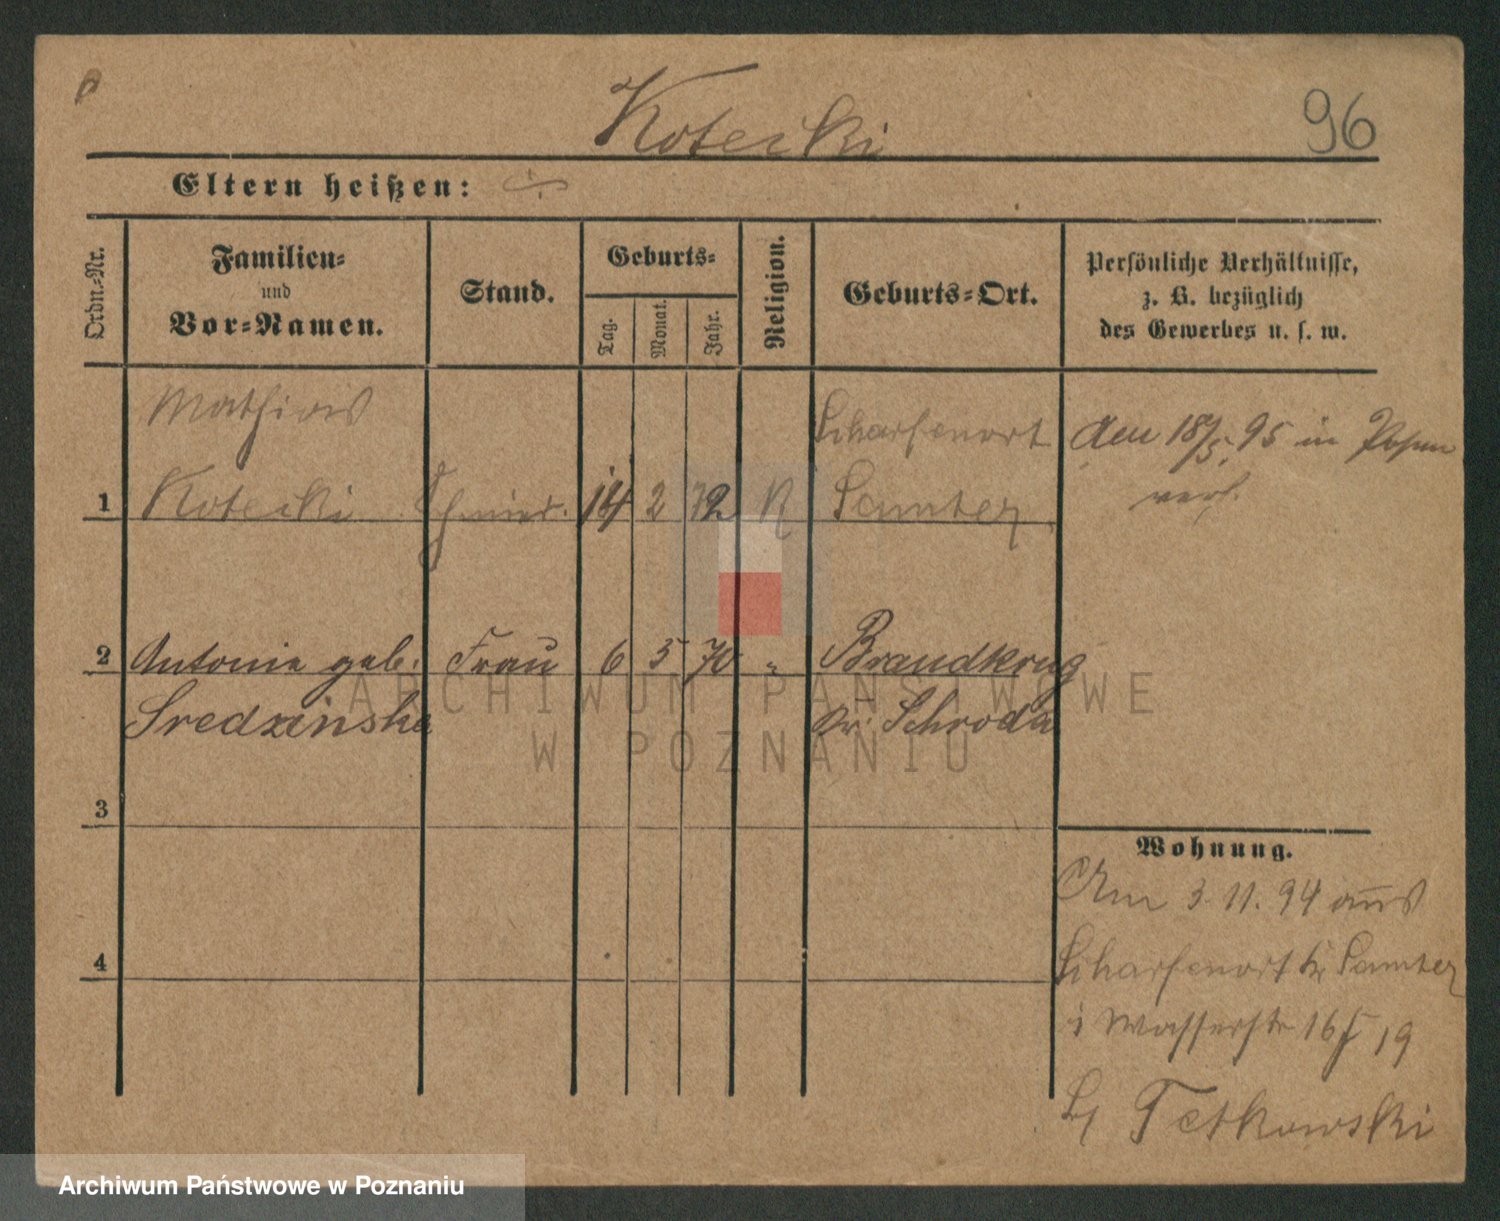 Kotecki
96
Eltern heißen:
Ordn.-Nr.
Familien-
und
Vor-Namen.
Stand.
Geburts-
Tag.
Monat.
Jahr.
Religion.
Geburts-Ort.
Persönliche Verhältnisse,
z. B. bezüglich
des Gewerbes u. s. w.
Mathias
Scharfenort
den 18/5. 95 in Posen
verh.
1 Kotecki Schmied. 14 2 72 K Samter
2 Antonie geb. Frau 6 5 70 " Brandkrug
Sredzinska Kr. Schroda
ARCHIWUM PAŃSTWOWE
W POZNANIU
3
Wohnung.
Am 3. 11. 94 aus
4
Scharfenort Kr Samter
i Wasserstr 16/ 19
Tetkowski
Archiwum Państwowe w Poznaniu